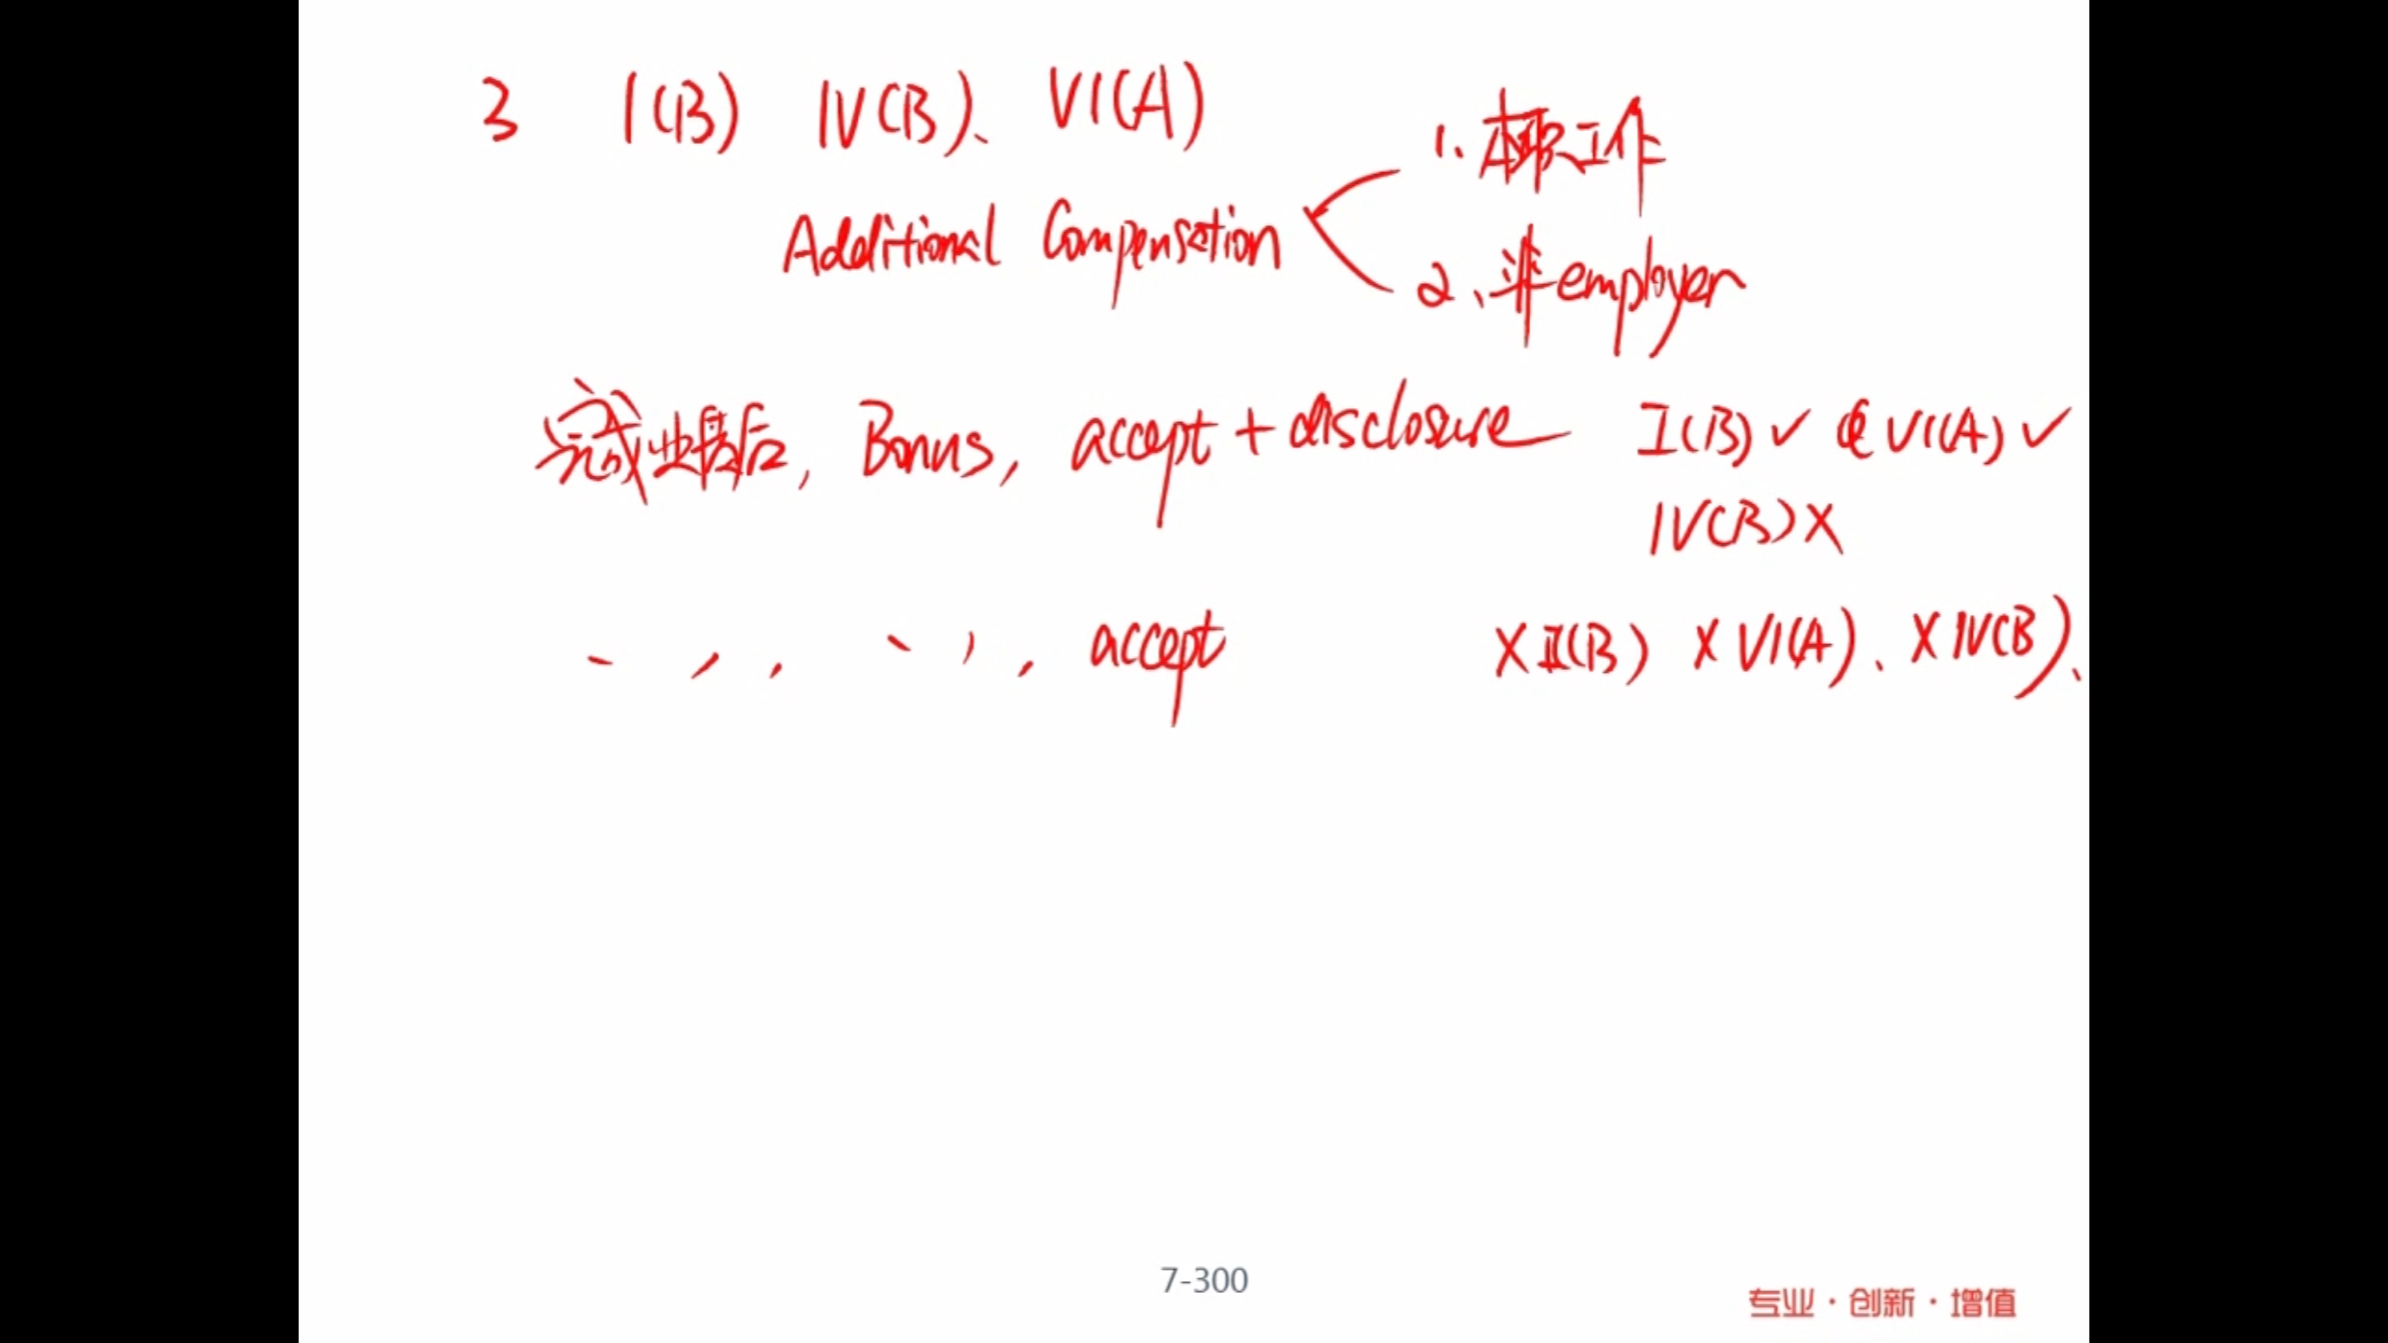 3 I(B) IV(B)、 VI(A)
1. 本职工作
Additional Compensation
2、非employer
完成业绩后, Bonus, accept + disclosure I(B) ✓ VI(A) ✓
IV(B) X
, , accept X II(B) X VI(A)、 X IV(B)、
7-300
专业·创新·增值